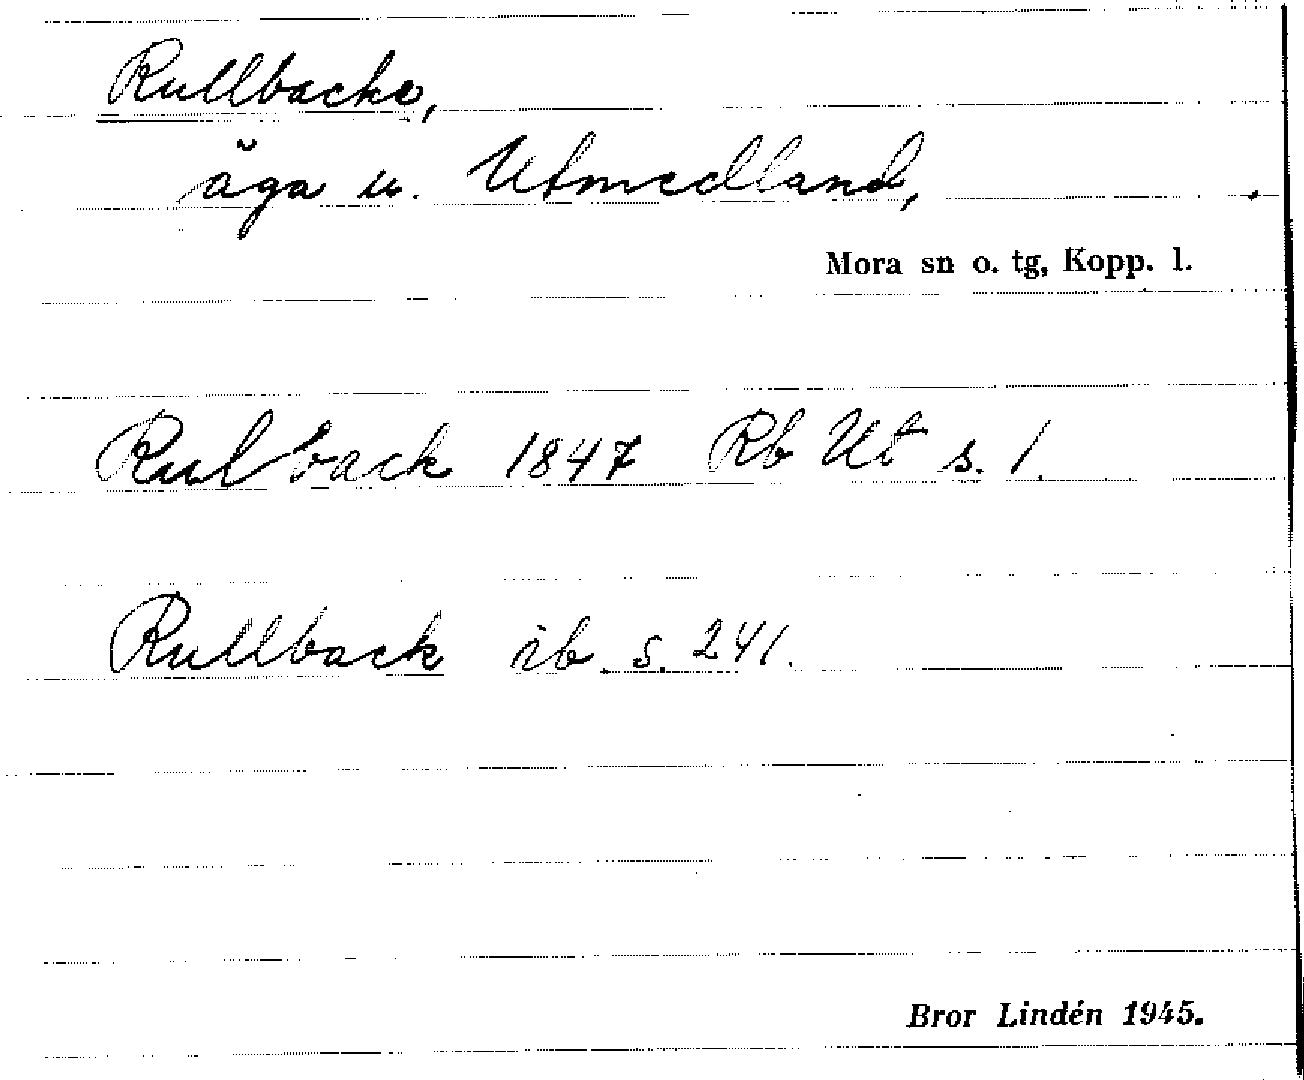 Rullbacke,
äga u. Utmedland,
Mora sn o. tg, Kopp. l.
Rulback 1847 Rb Ut s. 1.
Rullback ib. s. 241.
Bror Lindén 1945.